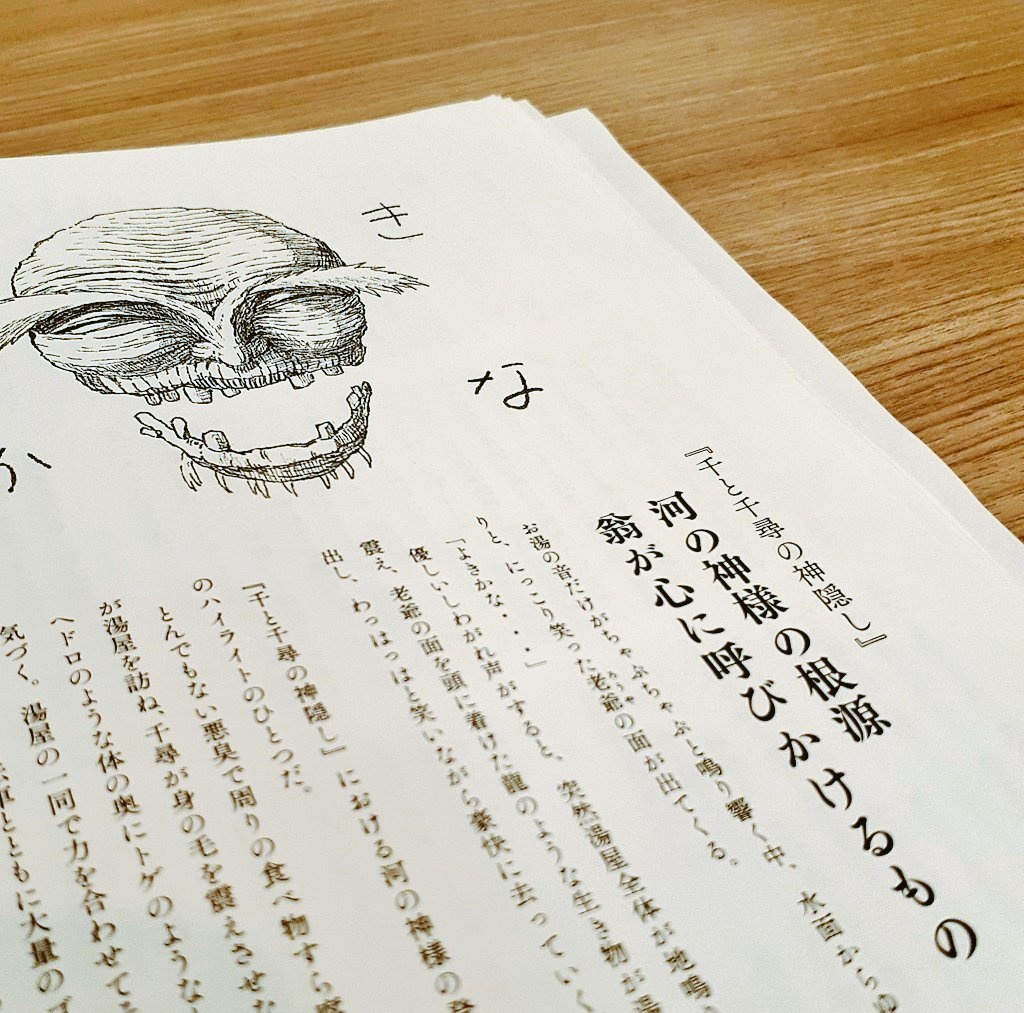 き
な
『千と千尋の神隠し』
河の神様の根源
翁が心に呼びかけるもの
お湯の音だけがちゃぷちゃぷと鳴り響く中、水面からゆ
りと、にっこり笑った老爺の面が出てくる。
「よきかな・・・」
優しいしわがれ声がすると、突然湯屋全体が地鳴
震え、老爺の面を頭に着けた龍のような生き物が湯
出し、わっはっはと笑いながら豪快に去っていく
『千と千尋の神隠し』における河の神様の
のハイライトのひとつだ。
とんでもない悪臭で周りの食べ物すら
が湯屋を訪ね、千尋が身の毛を震えさせな
ヘドロのような体の奥にトゲのような
気づく。湯屋の一同で力を合わせて
とともに大量の